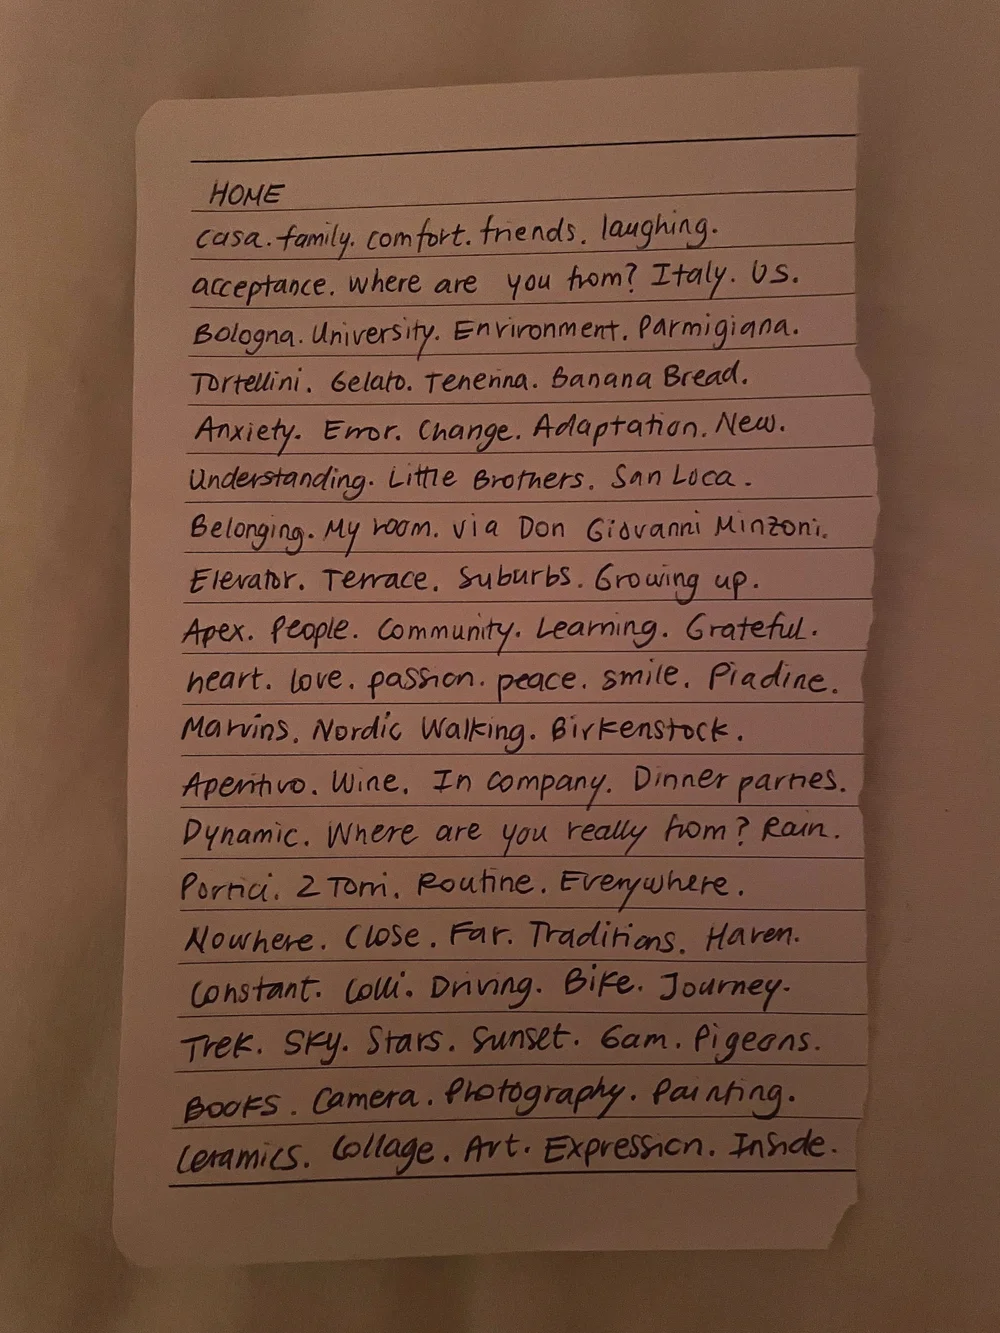 HOME
casa. family. comfort. friends. laughing.
acceptance. where are you from? Italy. US.
Bologna. University. Environment. Parmigiana.
Tortellini. Gelato. Tenerina. Banana Bread.
Anxiety. Error. Change. Adaptation. New.
Understanding. Little Brothers. San Luca.
Belonging. My room. via Don Giovanni Minzoni.
Elevator. Terrace. Suburbs. Growing up.
Apex. People. Community. Learning. Grateful.
heart. love. passion. peace. smile. Piadine.
Marvins. Nordic Walking. Birkenstock.
Aperitivo. Wine. In company. Dinner parties.
Dynamic. Where are you really from? Rain.
Portici. 2 Torri. Routine. Everywhere.
Nowhere. Close. Far. Traditions. Haven.
Constant. Colli. Driving. Bike. Journey.
Trek. Sky. Stars. Sunset. 6am. Pigeons.
Books. Camera. Photography. Painting.
Ceramics. Collage. Art. Expression. Inside.